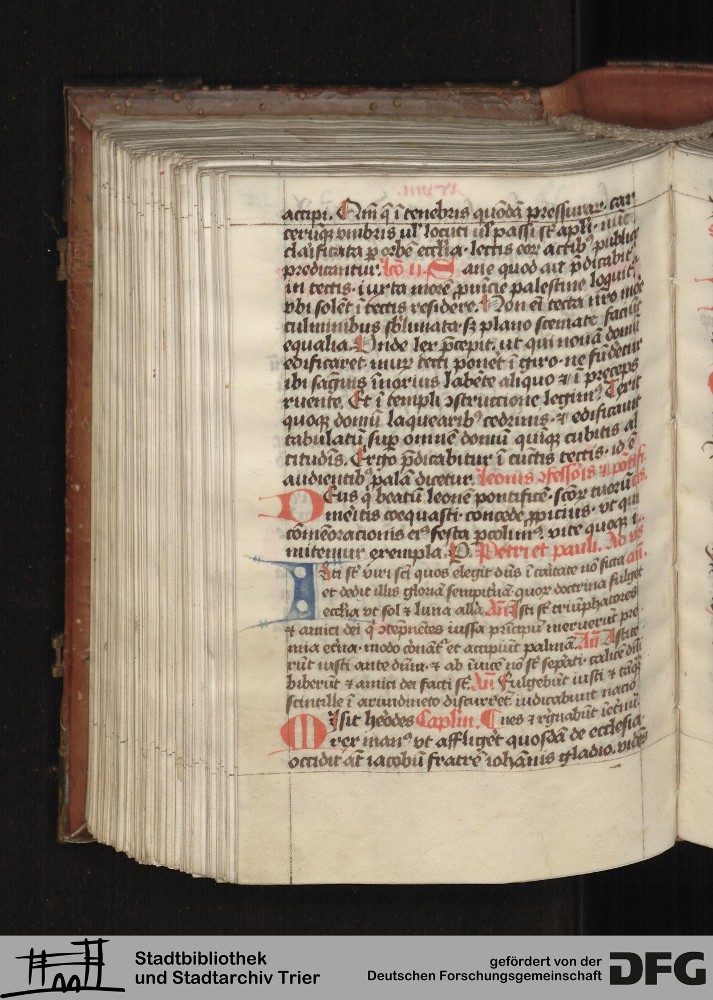 accipi. Om̄ q̄ ī tenebris quōdā pressurar. car
cerūq̄ vmbris ul' locuti ul' passi st̄ apl'i. nūc
cla'ificata p orbē eccl'ia. lectis eor actib' publice
predicantur. lcō ii. Sane quod ait p̄dicabit'
in tectis. iuxta morē ꝓuīcie palestine loquit'
vbi solēt ī tectis residere. Non eī tecta nr̄o mōe
culminibus sb'limata. sꝫ plano scemate faciūt
equalia. Vnde lex p̄cepit. ut qui nouā domū
edificaret. mur tecti ponet ī giro. ne fūdetur
ibi sāguis īnoxius labēte aliquo ⁊ ī preceps
ruente. Et ī templi ↄstructione legim'. Texit
quoq̄ domū laquearib' cedrinis. ⁊ edificauit
tabulatū sup omnē domū quīq̄ cubitis al
titudīs. Ergo p̄dicabitur ī cūctis tectis. id ē
audientib' palā dicetur. leonis ↄfessois ⁊ pōtifi
Deus q̄ beatū leonē pontificē. scōr tuorū cis.
meītis coequasti. concede ꝓpicius. vt qui
cōmēoracionis ei' festa ꝑcolim'. vite quoq̄ i
mitemur exempla. P. Petri et pauli. Ad vs
Isti st̄ viri scī quos elegit dn̄s ī caītate nō ficta an̄.
et dedit illis gloriā sempit'nā quor doctrina fulget
eccl'ia vt sol ⁊ luna all'a. An̄ Isti st̄ triūphatores
⁊ amici dei q̄ ↄtēpnētes iussa prīcipū meruerūt pre
mia et'na. modo corōnāt' et accipiūt palmā. An̄ Astite
rūt iusti ante dūm. ⁊ ab īuicē nō st̄ sepati. calicē dn̄i
biberūt ⁊ amici dei facti st̄. An̄ Fulgebūt iusti ⁊ tāq̄
scintille ī arundineto discurrēt. iudicabunt nacio
Misit herodes Caplm. nes ⁊ rgnabūt ī et'nū.
rex man' vt affliget quosdā de ecclesia.
occidit āt iacobū fratrē iohānis gladio. vidēs
Stadtbibliothek
und Stadtarchiv Trier
gefördert von der
Deutschen Forschungsgemeinschaft
DFG